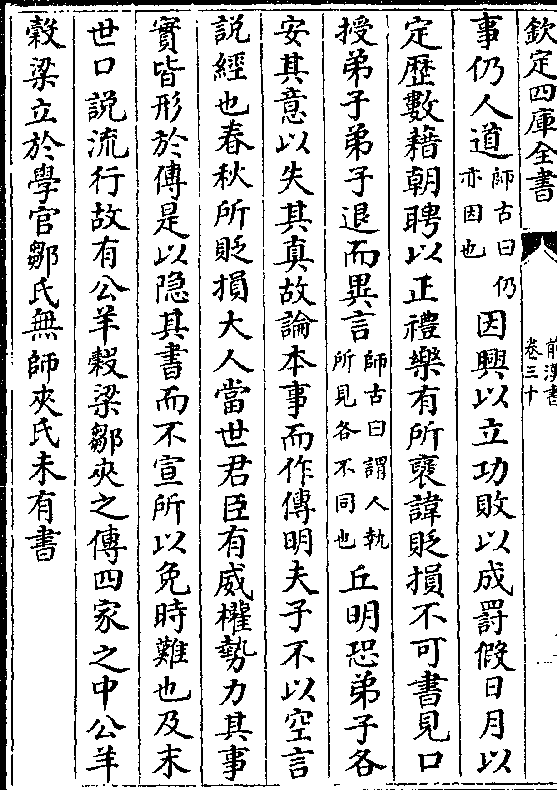 欽定四庫全書
前漢書
卷三十
事仍人道師古曰仍亦因也因興以立功敗以成罸假日月以
定歴數藉朝聘以正禮樂有所襃諱貶損不可書見口
授弟子弟子退而異言師古曰謂人執所見各不同也丘明恐弟子各
安其意以失其真故論本事而作傳明夫子不以空言
説經也春秋所貶損大人當世君臣有威權勢力其事
實皆形於傳是以隐其書而不宣所以免時難也及末
世口說流行故有公羊榖梁鄒夾之傳四家之中公羊
榖梁立於學官鄒氏無師夾氏未有書